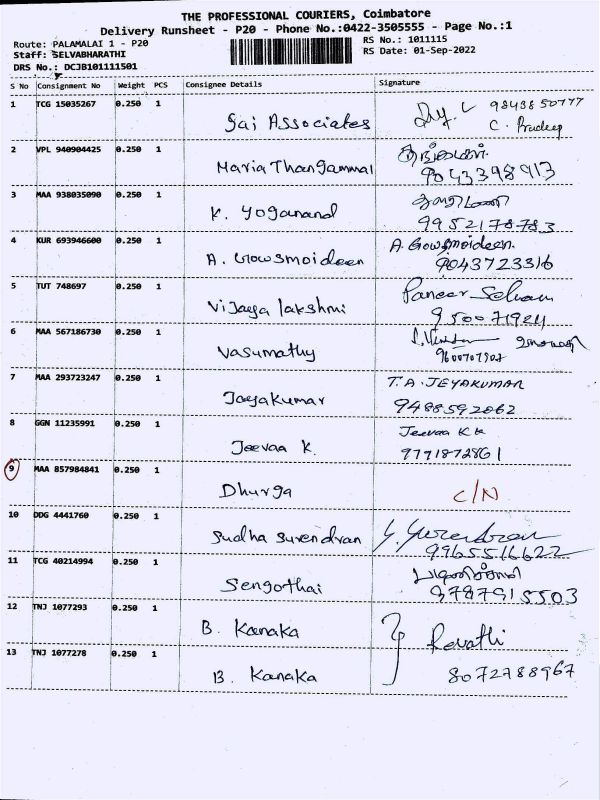 THE PROFESSIONAL COURIERS, Coimbatore
Delivery Runsheet - P20 - Phone No.:0422-3505555 - Page No.:1
Route: PALAMALAI 1 - P20
Staff: SELVABHARATHI
DRS No.: DCJB101111501
RS No.: 1011115
RS Date: 01-Sep-2022
S No Consignment No Weight PCS Consignee Details Signature
1 TCG 15035267 0.250 1 Sai Associates 9843850777
C. Pradeep
2 VPL 940904425 0.250 1 Maria Thangammal
9043398913
3 MAA 938035090 0.250 1 K. Yoganand
9952178783
4 KUR 693946600 0.250 1 A. Gowsmoideen A. Gowsmoideen.
9043723316
5 TUT 748697 0.250 1 Vijaya lakshmi Paneer Selvam
9500719211
6 MAA 567186730 0.250 1 Vasumathy
7 MAA 293723247 0.250 1 Jayakumar T.A. JEYAKUMAR
9488592062
8 GGN 11235991 0.250 1 Jeevaa K. Jeevaa K.K
9791872861
9 MAA 857984841 0.250 1 Dhurga C/N
10 DDG 4441760 0.250 1 Sudha Surendran S. Surendran
9965516622
11 TCG 40214994 0.250 1 Sengothai
9787915503
12 TNJ 1077293 0.250 1 B. Kanaka Revathi
13 TNJ 1077278 0.250 1 B. Kanaka 8072788967